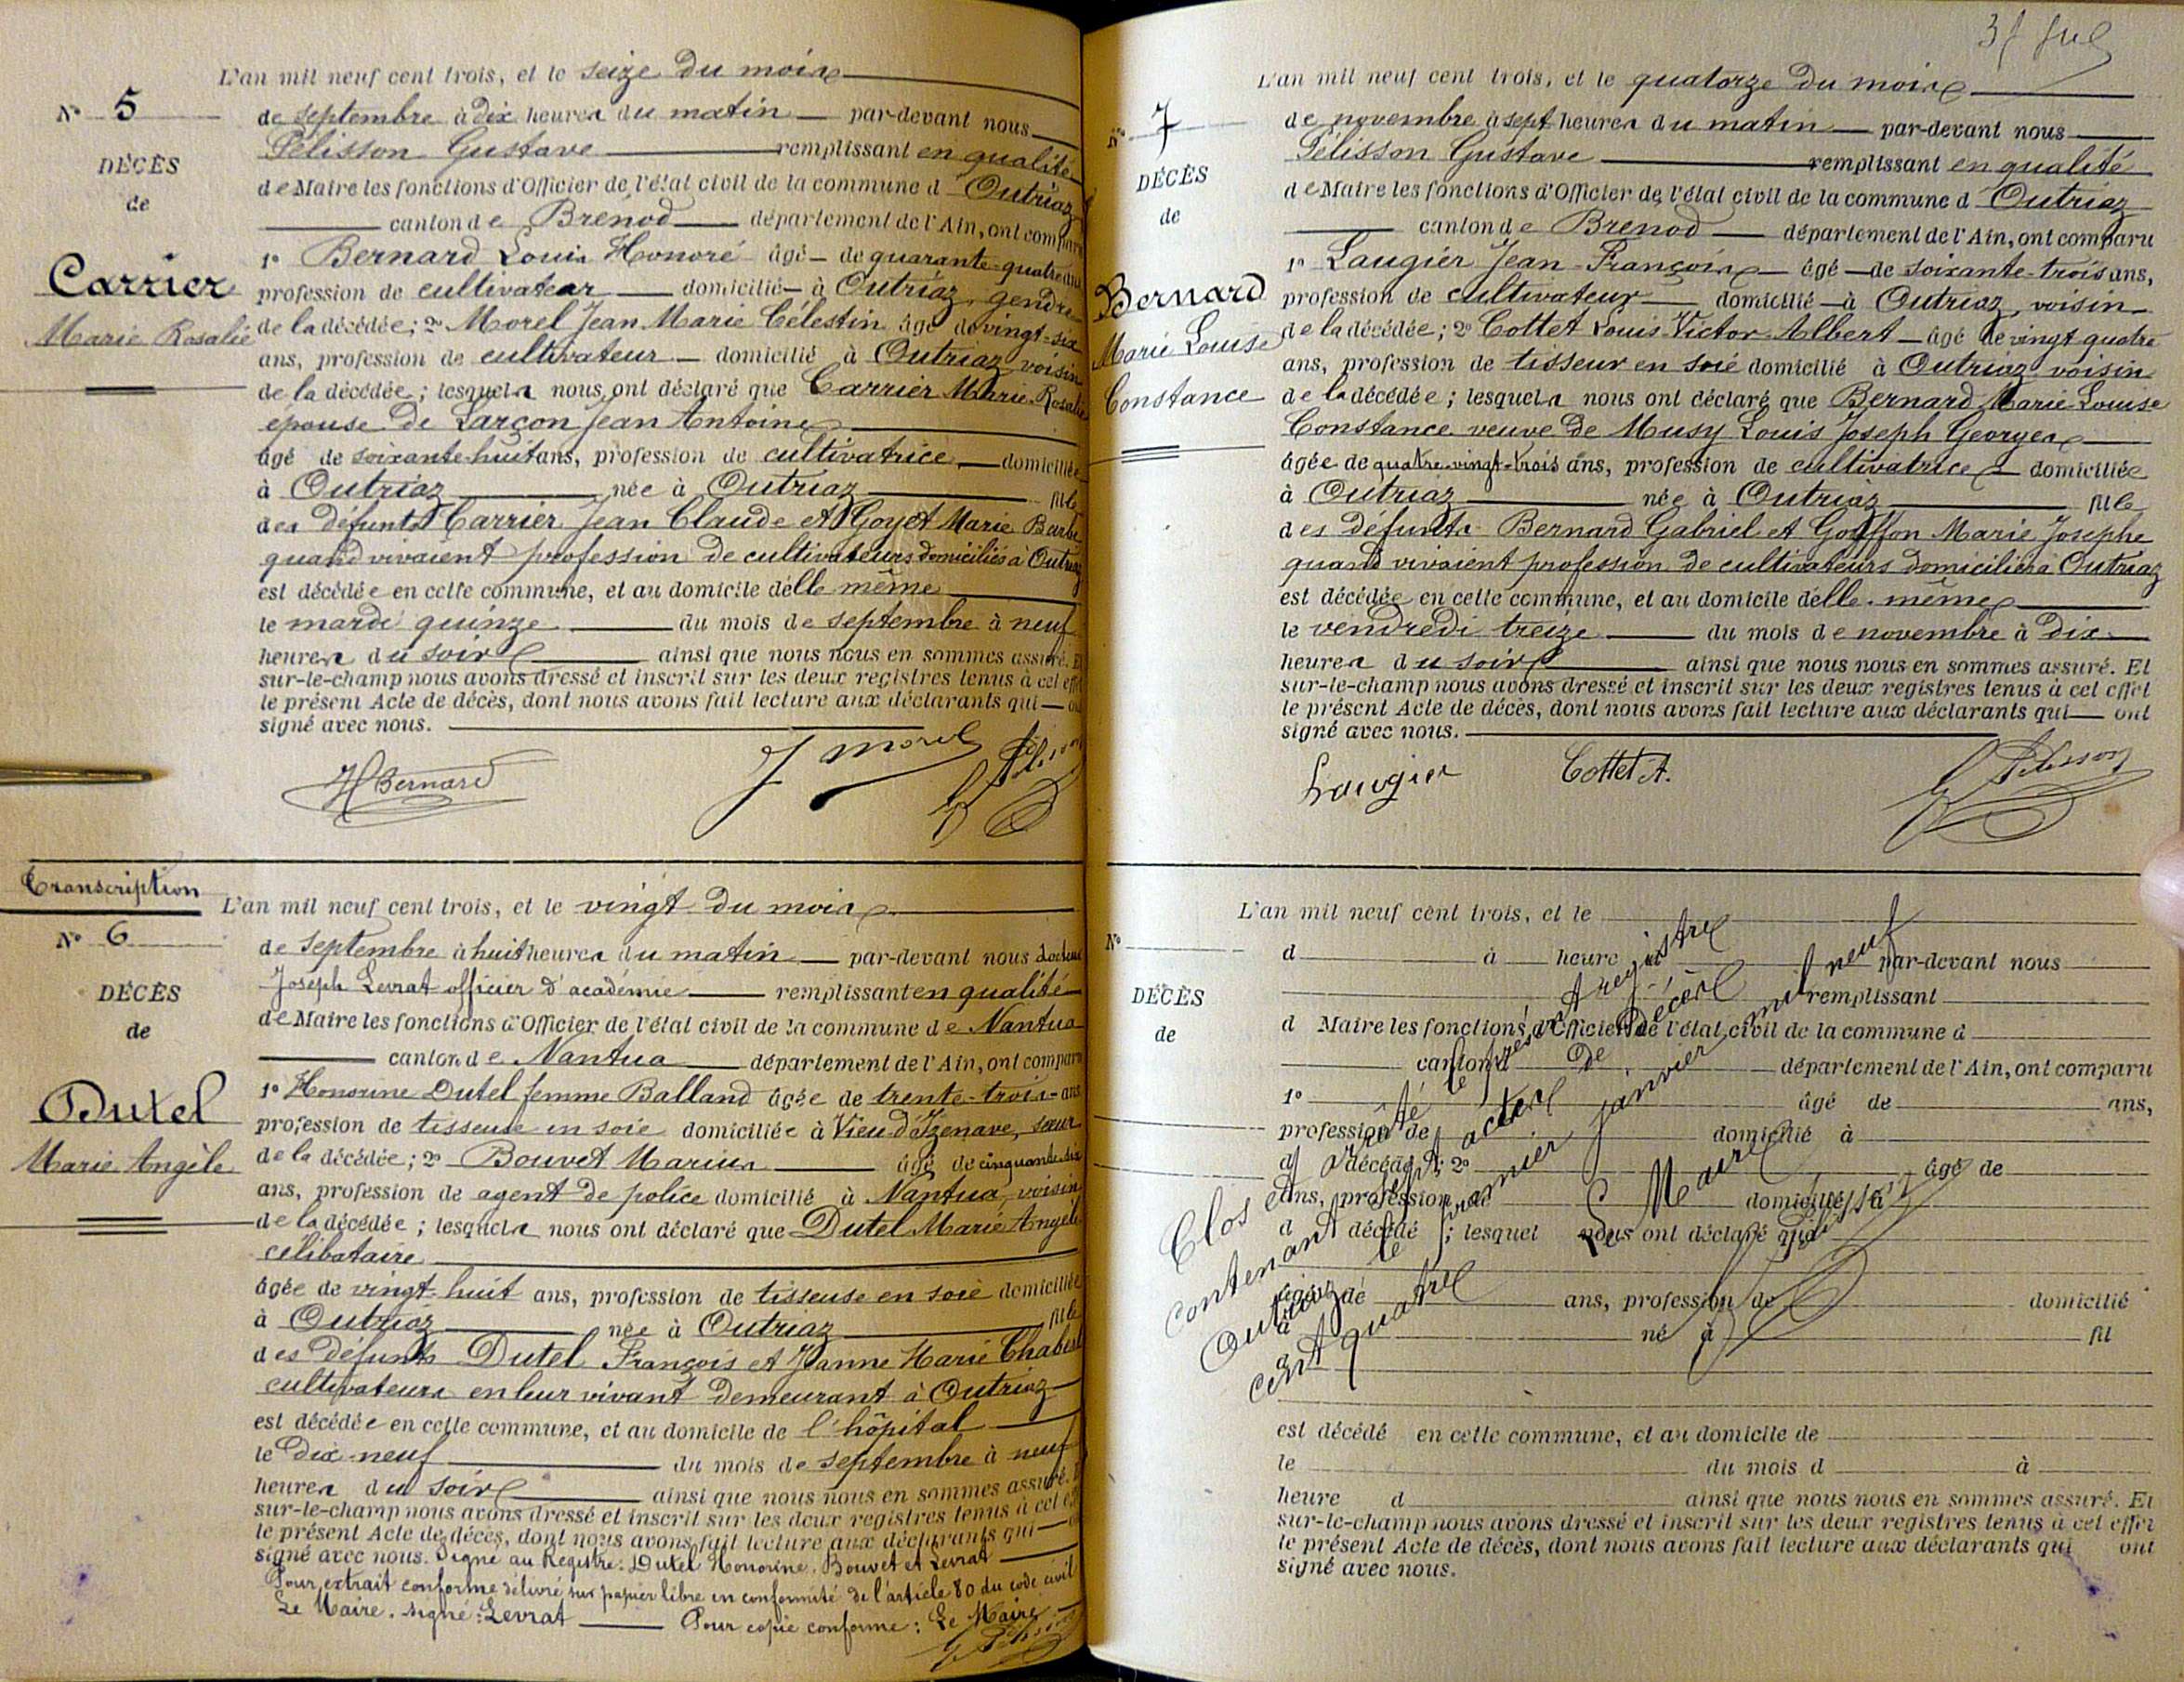 L'an mil neuf cent trois, et le seize du mois
N° 5
de septembre à dix heures du matin par-devant nous
DÉCÈS
de
Pélisson Gustave remplissant en qualité
de Maire les fonctions d'Officier de l'état civil de la commune d Outriaz
canton de Brénod département de l'Ain, ont comparu
Carrier
Marie Rosalie
1° Bernard Louis Honoré âgé de quarante-quatre ans
profession de cultivateur domicilié à Outriaz, gendre
de la décédée ; 2° Morel Jean Marie Célestin âgé de vingt-six
ans, profession de cultivateur domicilié à Outriaz voisin
de la décédée ; lesquels nous ont déclaré que Carrier Marie Rosalie
épouse de Larçon Jean Antoine
âgé de soixante-huit ans, profession de cultivatrice domiciliée
à Outriaz née à Outriaz fille
des défunts Carrier Jean Claude et Goyet Marie Barbe
quand vivaient profession de cultivateurs domiciliés à Outriaz
est décédée en cette commune, et au domicile d'elle même
le mardi quinze du mois de septembre à neuf
heures du soir ainsi que nous nous en sommes assuré. Et
sur-le-champ nous avons dressé et inscrit sur les deux registres tenus à cet effet
le présent Acte de décès, dont nous avons fait lecture aux déclarants qui ont
signé avec nous.
H Bernard
J Morel
G Pélisson
Transcription
L'an mil neuf cent trois, et le vingt du mois
N° 6
de septembre à huit heures du matin par-devant nous docteur
DÉCÈS
de
Joseph Levrat officier d'académie remplissant en qualité
de Maire les fonctions d'Officier de l'état civil de la commune de Nantua
canton de Nantua département de l'Ain, ont comparu
Dutel
Marie Angèle
1° Honorine Dutel femme Balland âgée de trente-trois ans
profession de tisseuse en soie domiciliée à Vieu d'Izenave, sœur
de la décédée ; 2° Bouvet Marius âgé de cinquante-six
ans, profession de agent de police domicilié à Nantua, voisin
de la décédée ; lesquels nous ont déclaré que Dutel Marie Angèle
célibataire
âgée de vingt-huit ans, profession de tisseuse en soie domiciliée
à Outriaz née à Outriaz fille
des défunts Dutel François et Jeanne Marie Chabert
cultivateurs en leur vivant demeurant à Outriaz
est décédée en cette commune, et au domicile de l'hôpital
le dix-neuf du mois de septembre à neuf
heures du soir ainsi que nous nous en sommes assuré. Et
sur-le-champ nous avons dressé et inscrit sur les deux registres tenus à cet effet
le présent Acte de décès, dont nous avons fait lecture aux déclarants qui ont
signé avec nous. Signé au Registre. Dutel Honorine. Bouvet et Levrat
Pour extrait conforme délivré sur papier libre en conformité de l'article 80 du code civil
Le Maire. signé : Levrat Pour copie conforme : Le Maire
G Pélisson
L'an mil neuf cent trois, et le quatorze du mois
N° 7
de novembre à sept heures du matin par-devant nous
DÉCÈS
de
Pélisson Gustave remplissant en qualité
de Maire les fonctions d'Officier de l'état civil de la commune d Outriaz
canton de Brenod département de l'Ain, ont comparu
Bernard
Marie Louise
Constance
1° Laugier Jean-François âgé de soixante-trois ans,
profession de cultivateur domicilié à Outriaz, voisin
de la décédée ; 2° Cottet Louis Victor Albert âgé de vingt quatre
ans, profession de tisseur en soie domicilié à Outriaz voisin
de la décédée ; lesquels nous ont déclaré que Bernard Marie Louise
Constance veuve de Musy Louis Joseph Georges
âgée de quatre-vingt-trois ans, profession de cultivatrice domiciliée
à Outriaz née à Outriaz fille
des défunts Bernard Gabriel et Gouffon Marie Josephe
quand vivaient profession de cultivateurs domiciliés à Outriaz
est décédée en cette commune, et au domicile d'elle-même
le vendredi treize du mois de novembre à dix
heures du soir ainsi que nous nous en sommes assuré. Et
sur-le-champ nous avons dressé et inscrit sur les deux registres tenus à cet effet
le présent Acte de décès, dont nous avons fait lecture aux déclarants qui ont
signé avec nous.
Laugier
Cottet A.
G Pélisson
L'an mil neuf cent trois, et le
N°
d à heure par-devant nous
DÉCÈS
de
remplissant
d Maire les fonctions d'Officier de l'état civil de la commune d
canton d département de l'Ain, ont comparu
1° âgé de ans,
profession de domicilié à
d décédé ; 2° âgé de
ans, profession de domicilié à
d décédé ; lesquel nous ont déclaré que
âgé de ans, profession de domicilié
à né à fil
d
est décédé en cette commune, et au domicile de
le du mois d à
heure d ainsi que nous nous en sommes assuré. Et
sur-le-champ nous avons dressé et inscrit sur les deux registres tenus à cet effet
le présent Acte de décès, dont nous avons fait lecture aux déclarants qui ont
signé avec nous.
Clos et arrêté le présent registre
contenant sept actes de décès
Outriaz le premier janvier mil neuf
cent quatre
Le Maire
G Pélisson